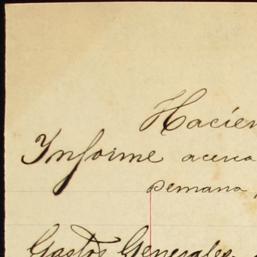 Hacien
Informe acerca
semana
Gastos Generales